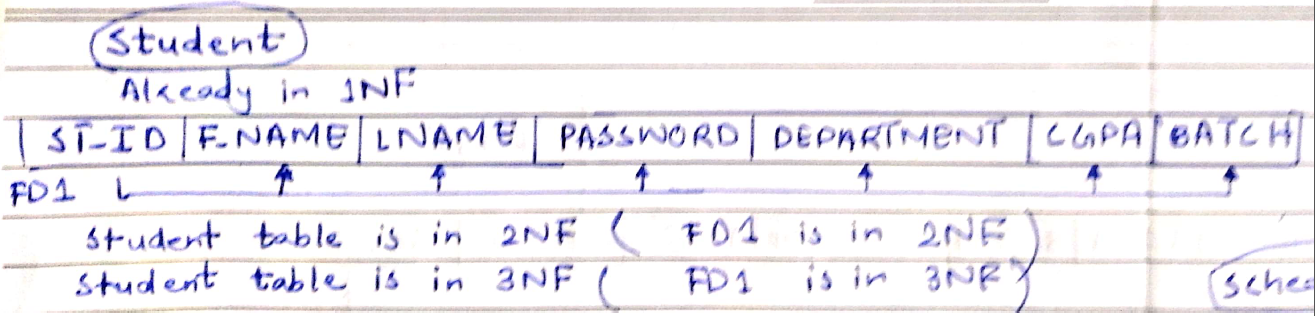 Student
Already in 1NF
ST_ID | F_NAME | LNAME | PASSWORD | DEPARTMENT | CGPA | BATCH
FD1
Student table is in 2NF ( FD1 is in 2NF )
Student table is in 3NF ( FD1 is in 3NF )